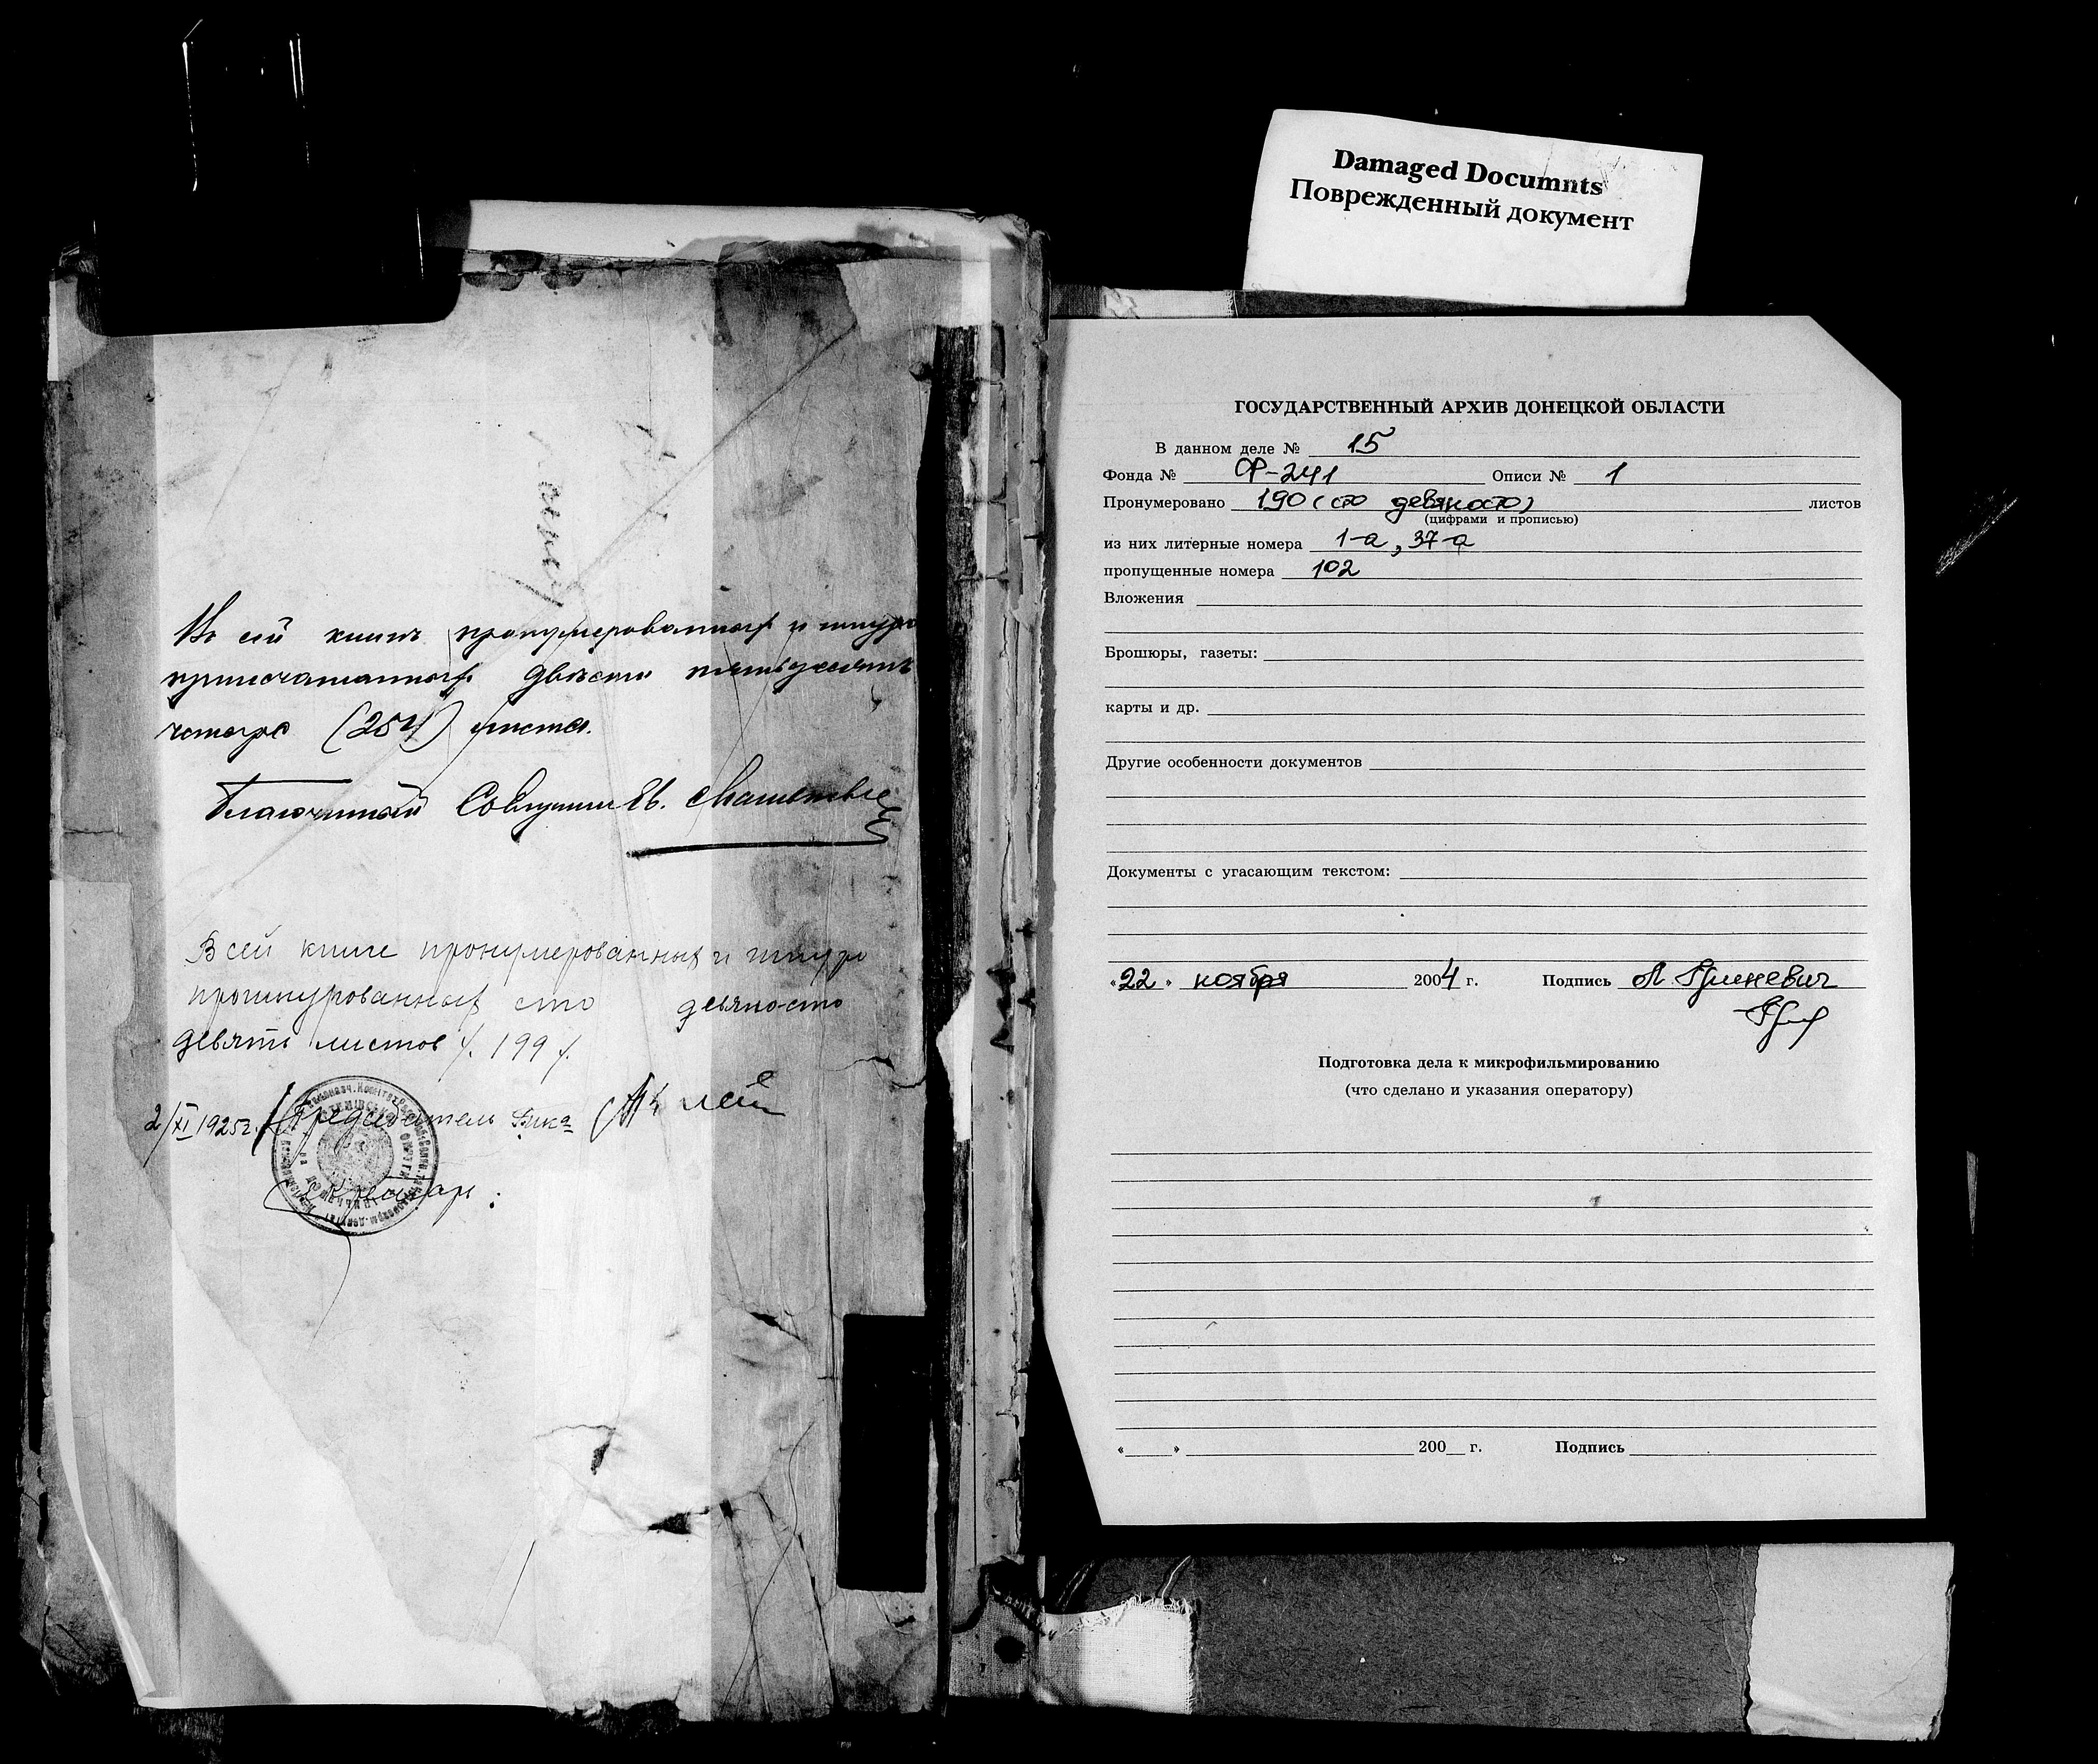 Въ сей книгѣ пронумерованныхъ и шнуро
припечатанныхъ двѣсти пятьдесятъ
четыре (254) листа.
Благочинный Священник
В сей книге пронумерованных и шнуро
прошнурованных сто девяносто
девять листов /. 199 /.
2/XI 1925 г. Председатель Вика
Секретарь:
Damaged Documnts
Поврежденный документ
ГОСУДАРСТВЕННЫЙ АРХИВ ДОНЕЦКОЙ ОБЛАСТИ
В данном деле № 15
Фонда № Ф-241 Описи № 1
Пронумеровано 190 (сто девяносто) листов
(цифрами и прописью)
из них литерные номера 1-а, 37-а
пропущенные номера 102
Вложения
Брошюры, газеты:
карты и др.
Другие особенности документов
Документы с угасающим текстом:
«22» ноября 2004 г. Подпись Л. Гриневич
Подготовка дела к микрофильмированию
(что сделано и указания оператору)
« » 200 г. Подпись